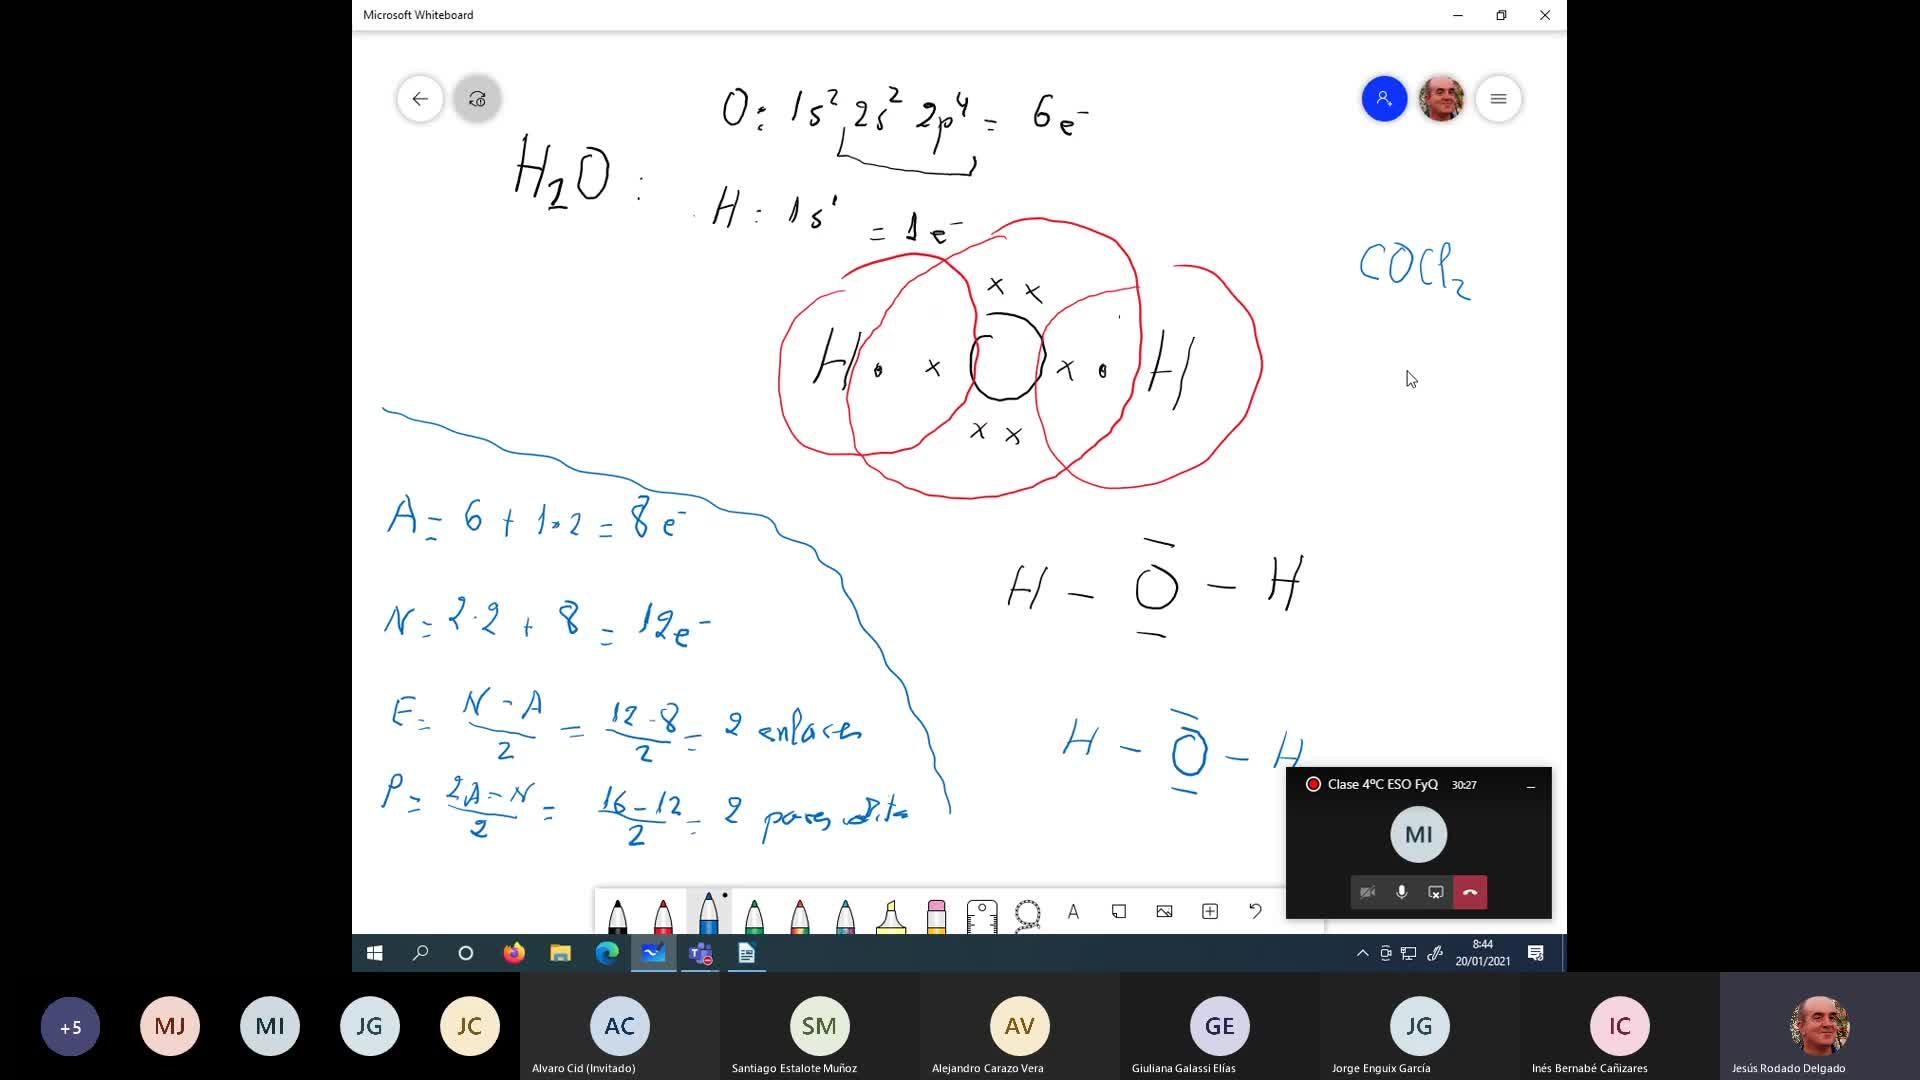 Microsoft Whiteboard
O: 1s² 2s² 2p⁴ = 6e⁻
H₂O :
H : 1s¹ = 1e⁻
COCl₂
x x
H • x O x • H
x x
A = 6 + 1·2 = 8e⁻
H - O - H
N = 2·2 + 8 = 12e⁻
E = N - A / 2 = 12 - 8 / 2 = 2 enlaces
H - O - H
P = 2A - N / 2 = 16 - 12 / 2 = 2 pares
Clase 4ºC ESO FyQ 30:27
MI
A
8:44
20/01/2021
+5
MJ
MI
JG
JC
AC
SM
AV
GE
JG
IC
Alvaro Cid (Invitado)
Santiago Estalote Muñoz
Alejandro Carazo Vera
Giuliana Galassi Elías
Jorge Enguix García
Inés Bernabé Cañizares
Jesús Rodado Delgado